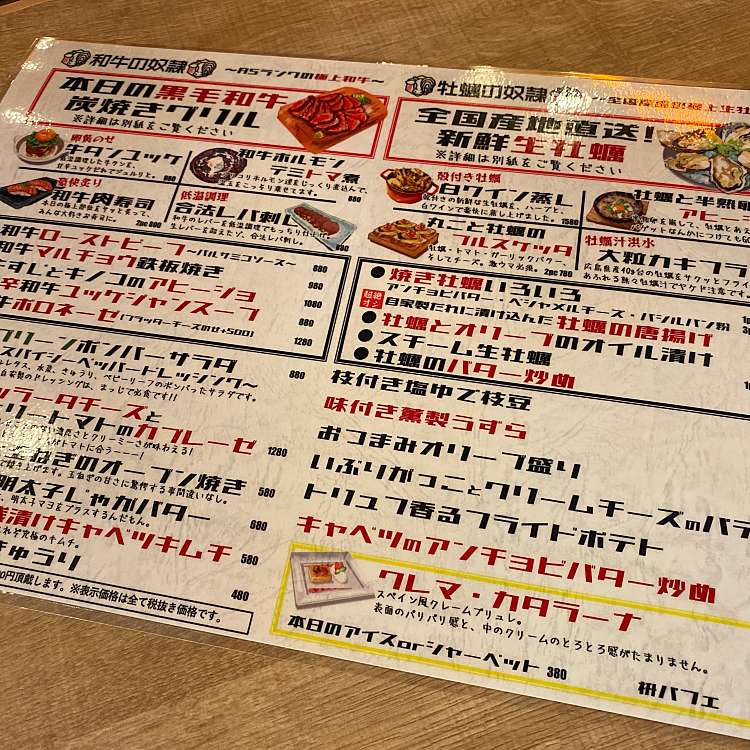 和牛の奴隷
〜A5ランクの極上和牛〜
本日の黒毛和牛
炭焼きグリル
※詳細は別紙をご覧ください
卵黄のせ
牛タンユッケ
和牛ホルモン
デミトマ煮
880
豪快炙り
和牛肉寿司
2pc 800
低温調理
合法レバ刺し
和牛ローストビーフ〜バルサミコソース〜 880
和牛マルチョウ鉄板焼き 980
牛すじとキノコのアヒージョ 1080
辛和牛ユッケジャンスープ 880
牛ボロネーゼ(ブラッターチーズのせ+500) 1280
グリーンボンバーサラダ
スパイシーペッパードレッシング〜 880
ブラータチーズと
トマトのカプレーゼ 1280
玉ねぎのオーブン焼き 580
明太子じゃがバター 680
浅漬けキャベツキムチ 580
きゅうり 480
円頂戴します。※表示価格は全て税抜き価格です。
牡蠣の奴隷
全国産地直送!
新鮮生牡蠣
※詳細は別紙をご覧ください
殻付き牡蠣
白ワイン蒸し
白ワインで豪快に蒸し上げました。 1580
丸ごと牡蠣の
ブルスケッタ
牡蠣・トマト・ガーリックバター
そしてチーズ。激ウマ必須。 2pc 780
牡蠣と半熟卵
アヒージ
牡蠣汁洪水
大粒カキフラ
広島県産40gの牡蠣をサクッとフライ
あふれる熱々牡蠣汁でヤケド注意です
● 焼き牡蠣いろいろ
アンチョビバター・ベシャメルチーズ・バジルパン粉
超絶
オシ
自家製だれに漬け込んだ 牡蠣の唐揚げ
● 牡蠣とオリーブのオイル漬け
● スチーム生牡蠣
● 牡蠣のバター炒め
枝付き塩ゆで枝豆
味付き燻製うずら
おつまみオリーブ盛り
いぶりがっことクリームチーズの
トリュフ香るフライドポテト
キャベツのアンチョビバター炒め
クレマ・カタラーナ
スペイン風クレームブリュレ。
表面のパリパリ感と、中のクリームのとろとろ感がたまりません。
本日のアイスorシャーベット 380
枡パフェ